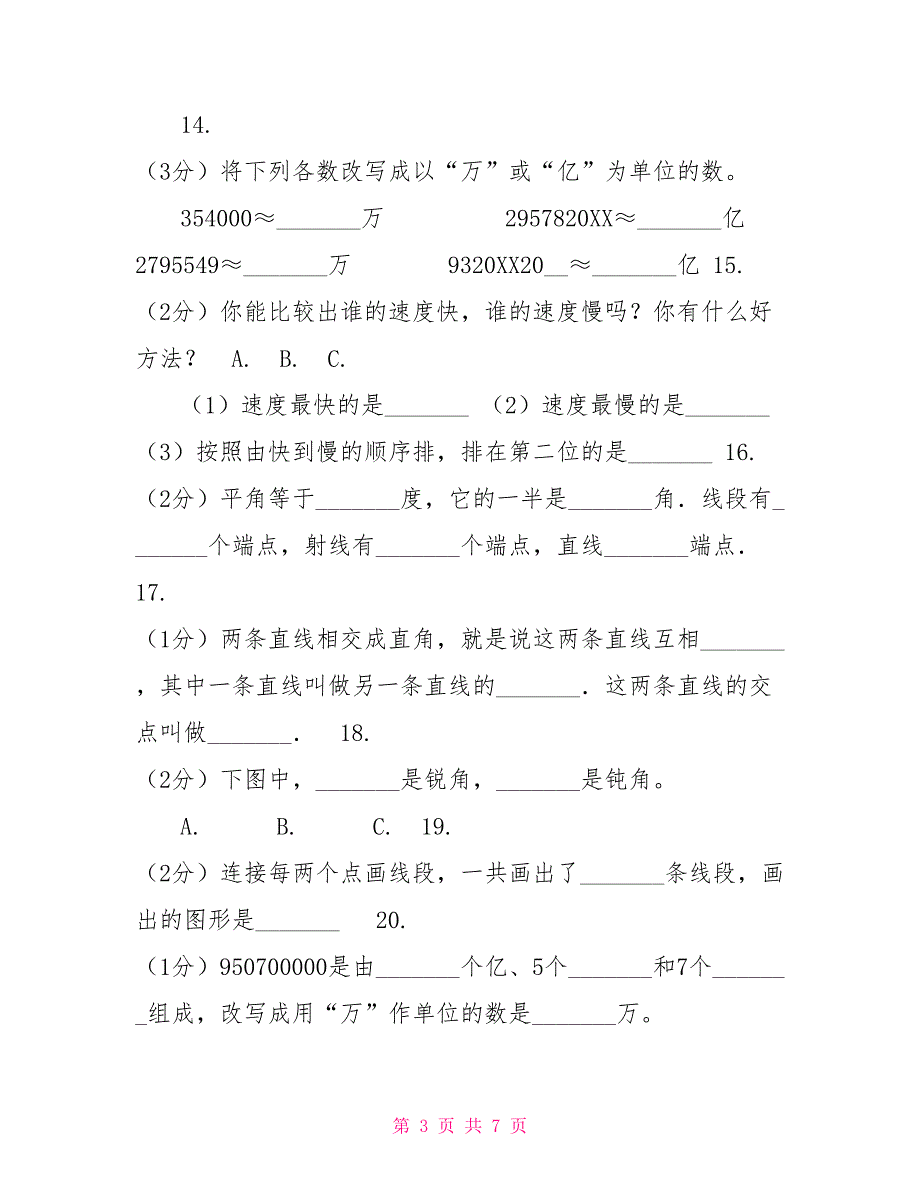 14.
（3分）将下列各数改写成以“万”或“亿”为单位的数。
354000≈_______万 2957820XX≈_______亿
2795549≈_______万 9320XX20__≈_______亿 15.
（2分）你能比较出谁的速度快，谁的速度慢吗？你有什么好
方法？ A. B. C.
（1）速度最快的是_______ （2）速度最慢的是_______
（3）按照由快到慢的顺序排，排在第二位的是_______ 16.
（2分）平角等于_______度，它的一半是_______角．线段有_
______个端点，射线有_______个端点，直线_______端点．
17.
（1分）两条直线相交成直角，就是说这两条直线互相_______
，其中一条直线叫做另一条直线的_______．这两条直线的交
点叫做_______． 18.
（2分）下图中，_______是锐角，_______是钝角。
A. B. C. 19.
（2分）连接每两个点画线段，一共画出了_______条线段，画
出的图形是_______ 20.
（1分）950700000是由_______个亿、5个_______和7个______
_组成，改写成用“万”作单位的数是_______万。
第 3 页 共 7 页